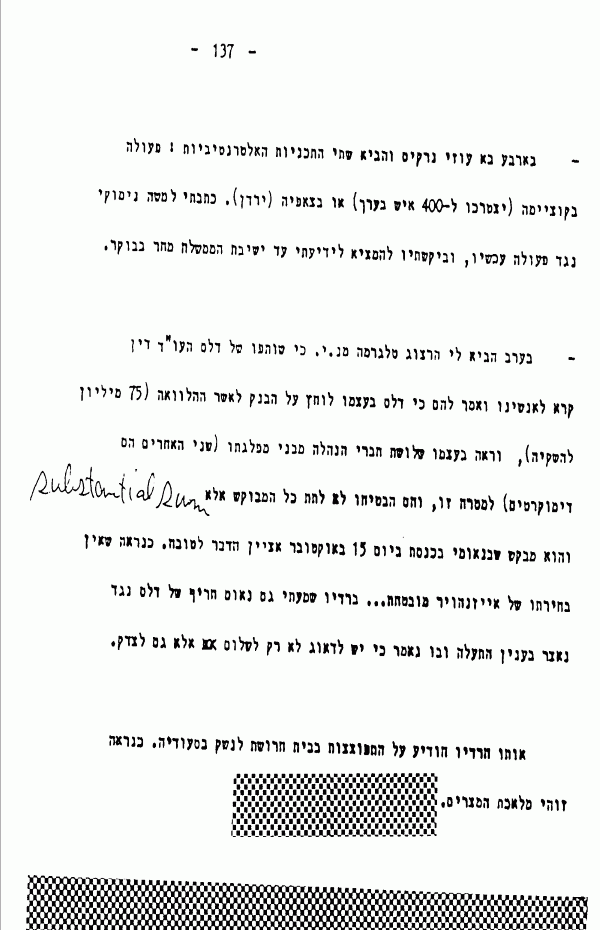 - 137 -
- בארבע בא עוזי נרקיס והביא שתי התכניות האלטרנטיביות : פעולה
בקוציימה (יצטרכו ל-400 איש בערך) או בצאפיה (ירדן). כתבתי למשה נימוקי
נגד פעולה עכשיו, וביקשתיו להמציא לידיעתי עד ישיבת הממשלה מחר בבוקר.
- בערב הביא לי הרצוג טלגרמה מנ.י. כי שותפו של דלס העו"ד דין
קרא לאנשינו ואמר להם כי דלס בעצמו לוחץ על הבנק לאשר ההלוואה (75 מיליון
להשקיה), וראה בעצמו שלושת חברי הנהלה מבני מפלגתו (שני האחרים הם
דימוקרטים) למטרה זו, והם הבטיחו לא לתת כל המבוקש אלא substantial sum
והוא מבקש שבנאומי בכנסת ביום 15 באוקטובר אציין הדבר לטובה. כנראה שאין
בחירתו של אייזנהויר מובטחת... ברדיו שמעתי גם נאום חריף של דלס נגד
נאצר בענין התעלה ובו נאמר כי יש לדאוג לא רק לשלום xx אלא גם לצדק.
אותו הרדיו הודיע על התפוצצות בבית חרושת לנשק בסעודיה. כנראה
זוהי מלאכת המצרים.